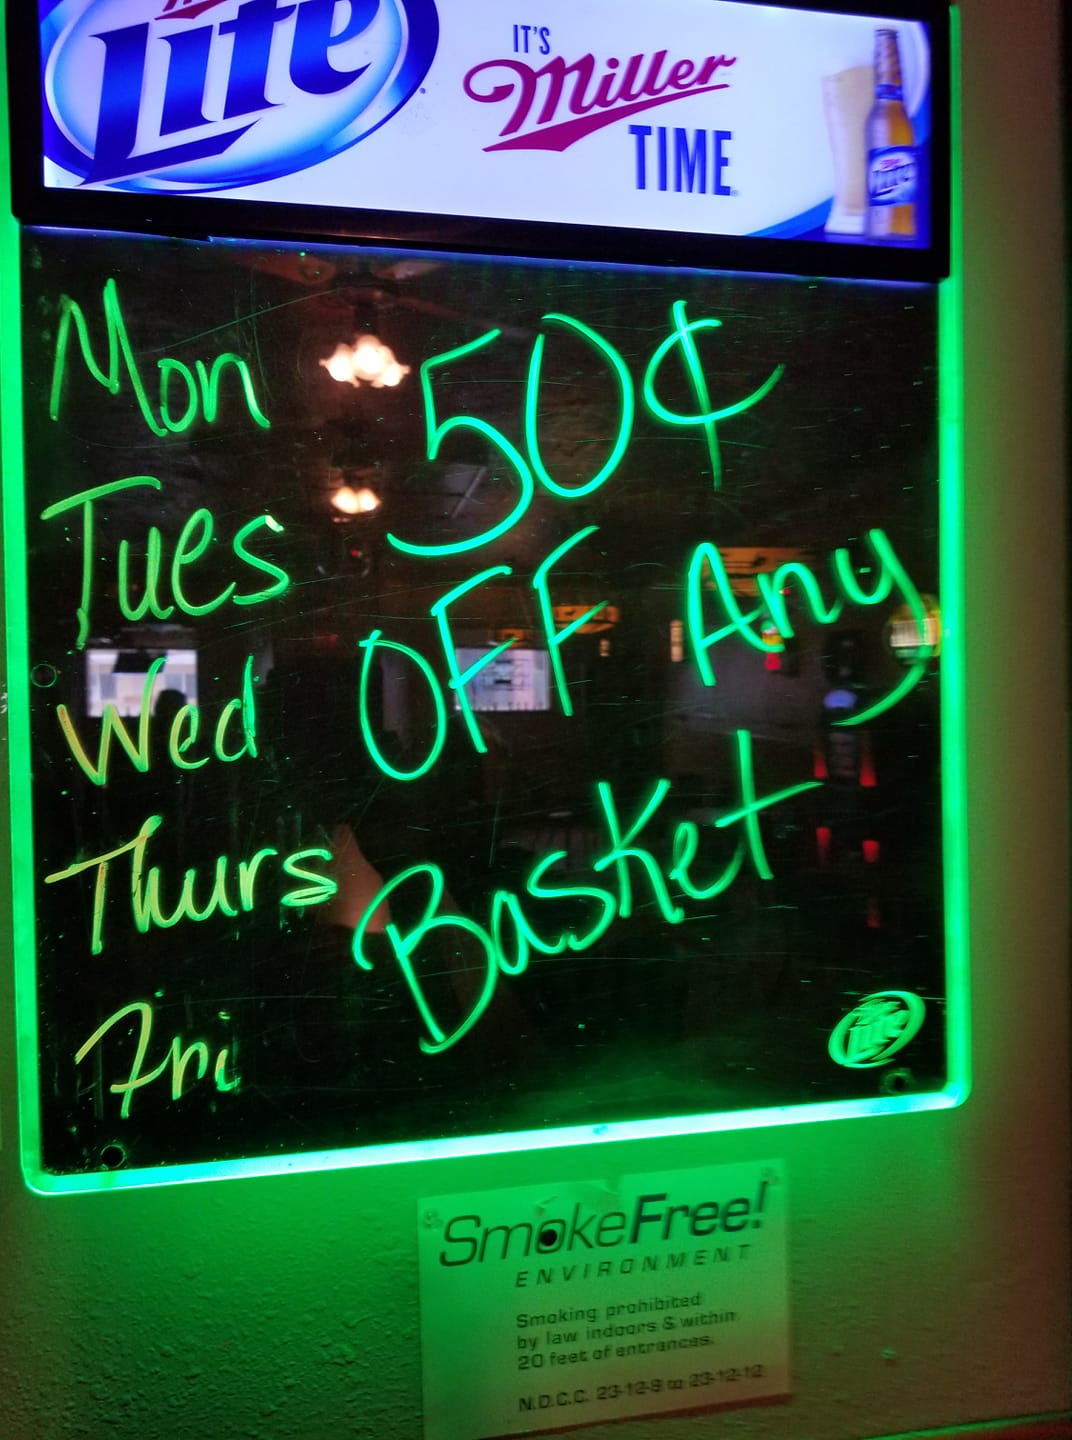 Lite
IT'S
Miller
TIME
Lite
Mon
Tues
Wed
Thurs
Fri
50¢
OFF Any
Basket
Lite
SmokeFree!
ENVIRONMENT
Smoking prohibited
by law indoors & within
20 feet of entrances.
N.D.C.C. 23-12-9 to 23-12-12